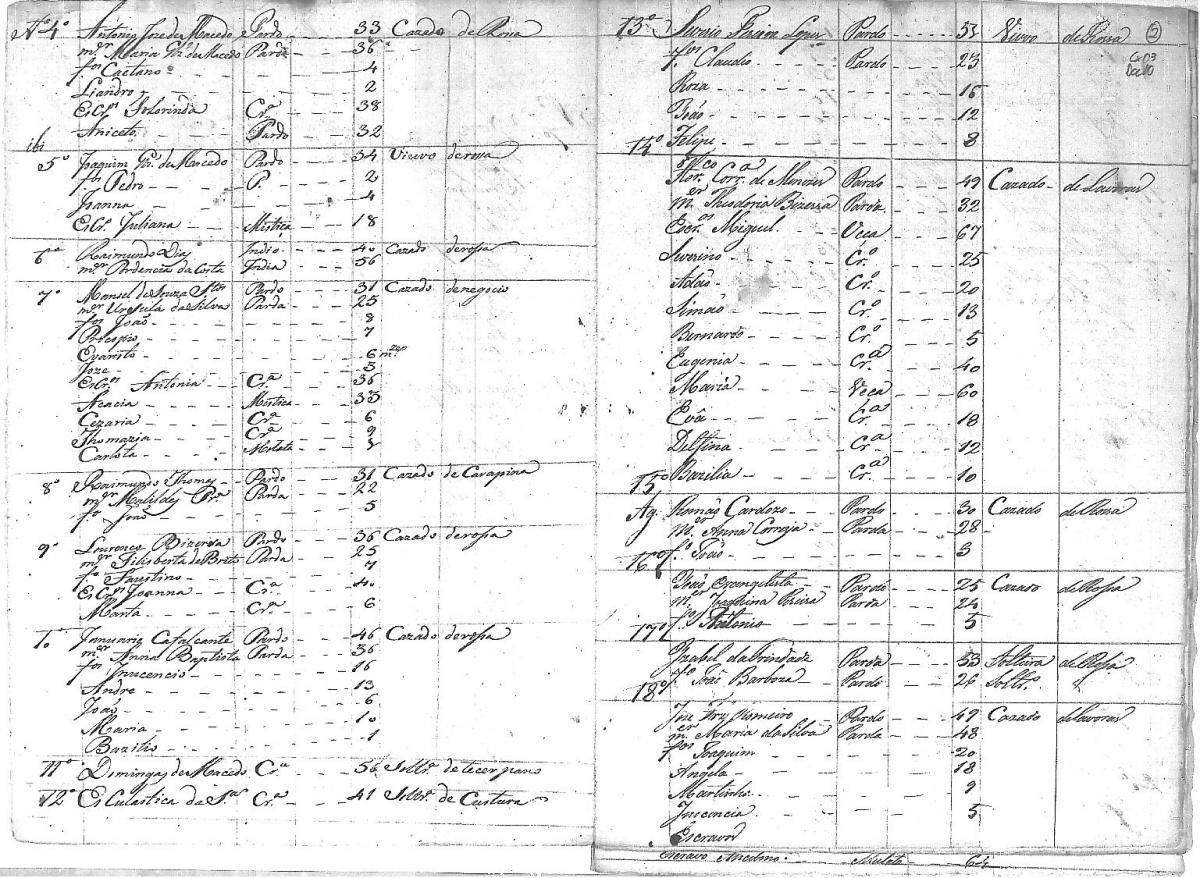 Nº 4º Antonio Joze de Macedo Pardo 33 Cazado de Rosa
m.er Maria Glz' de Macedo Parda 36
f.os Caetano 4
Liandro 2
Escr.os Florinda Cr.ª 38
Aniceto Pardo 32
5º Joaquim Glz' de Macedo Pardo 34 Viuvo de rosa
f.os Pedro P. 2
Joanna 4
Escr. Juliana Mistica 18
6º Raimundo Diz Indio 40 Cazado de rosa
m.er da Costa India 56
7º Manoel de Souza Pardo 31 Cazado de negocio
m.er Ursula da Silva Parda 25
f.os João 8
Procopio 7
Evaristo 6 m.zes
Joze 3
Escr.os Antonia Cr.ª 36
Acacia Mistica 33
Cezaria Cr.ª 6
Thomazia Cr.ª 9
Carlota Molata 8
8º Raimundo Thomaz Pardo 31 Cazado de Carapina
m.er Matildes Pr.ª Parda 22
f.º 5
9º Lourenço Bizerra Pardo 36 Cazado de rosa
m.er Filisberta de Brito Parda 25
f.º Faustino 7
Escr.os Joanna Cr.ª 40
Marta Cr.ª 6
10 Januario Cafalcante Pardo 46 Cazado de rosa
m.er Anna Baptista Parda 36
f.os Innocencio 16
Andre 13
João 6
Maria 10
Bazilio 1
11º Domingas de Macedo Cr.ª 56 Soltr.ª de tecer pano
12º Esculastica da S.ª Cr.ª 41 Soltr.ª de Custura
13º Severio Lopes Pardo 53 Viuvo de Rossa 2
f.os Claudio Pardo 23
Roza 16
Braz 12
14º Felipe 8
Corr.ª de Menezes Pardo 49 Cazado de Lavoras
m.er Theodoria Bezerra Parda 32
Escr.os Miguel Veca 67
Severino Cr.º 25
Adão Cr.º 20
Simão Cr.º 13
Bernardo Cr.º 5
Eugenia Cr.ª 40
Maria Veca 60
Eva Cr.ª 18
Delfina Cr.ª 12
15º Bazilia Cr.ª 10
Ag. Romão Cardozo Pardo 30 Cazado de Rossa
M.er Anna Correja Parda 28
16º f.º João 3
João Evangelista Pardo 25 Cazado de Rossa
m.er Joaquina Pereira Parda 24
17º f.º Antonio 5
Izabel da Trindada Parda 53 Soltura de Rossa
18º f.º João Barboza Pardo 26 Soltr.º
Joze Romeiro Pardo 49 Cazado de lavoras
m.er Maria da Silva Parda 48
f.os Joaquim 20
Angela 18
Martinho 9
Inocencia 5
Escravos
escravo Anselmo Mulato 64